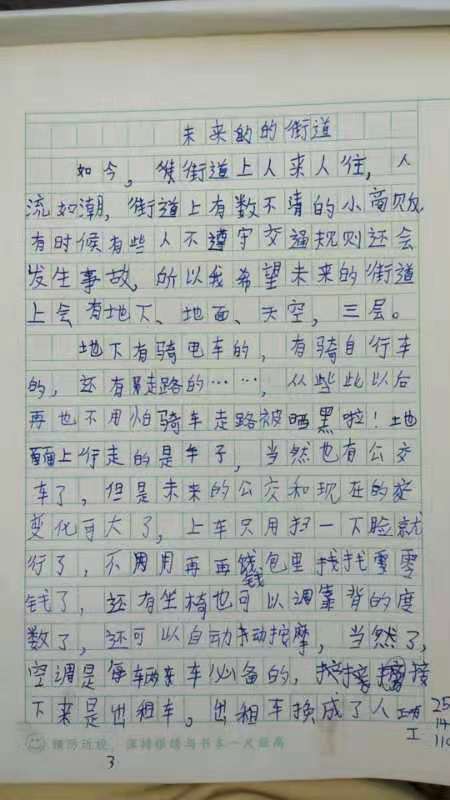 未来的的街道
如今，街道上人来人往，人
流如潮，街道上有数不清的小商贩
有时候有些人不遵守交通规则还会
发生事故，所以我希望未来的街道
上会有地下、地面、天空，三层。
地下有骑电车的，有骑自行车
的，还有走路的……，从此以后
再也不用怕骑车走路被晒黑啦！地
面上行走的是车子，当然也有公交
车了，但是未来的公交和现在的
变化可大了，上车只用扫一下脸就
行了，不用再再钱包里找找零零
钱
钱了，还有坐椅也可以调靠背的度
数了，还可以自动按摩，当然了，
空调是每辆车必备的，接
下来是出租车。出租车换成了人工
预防近视，保持眼睛与书本一尺距离
3
25
14
110